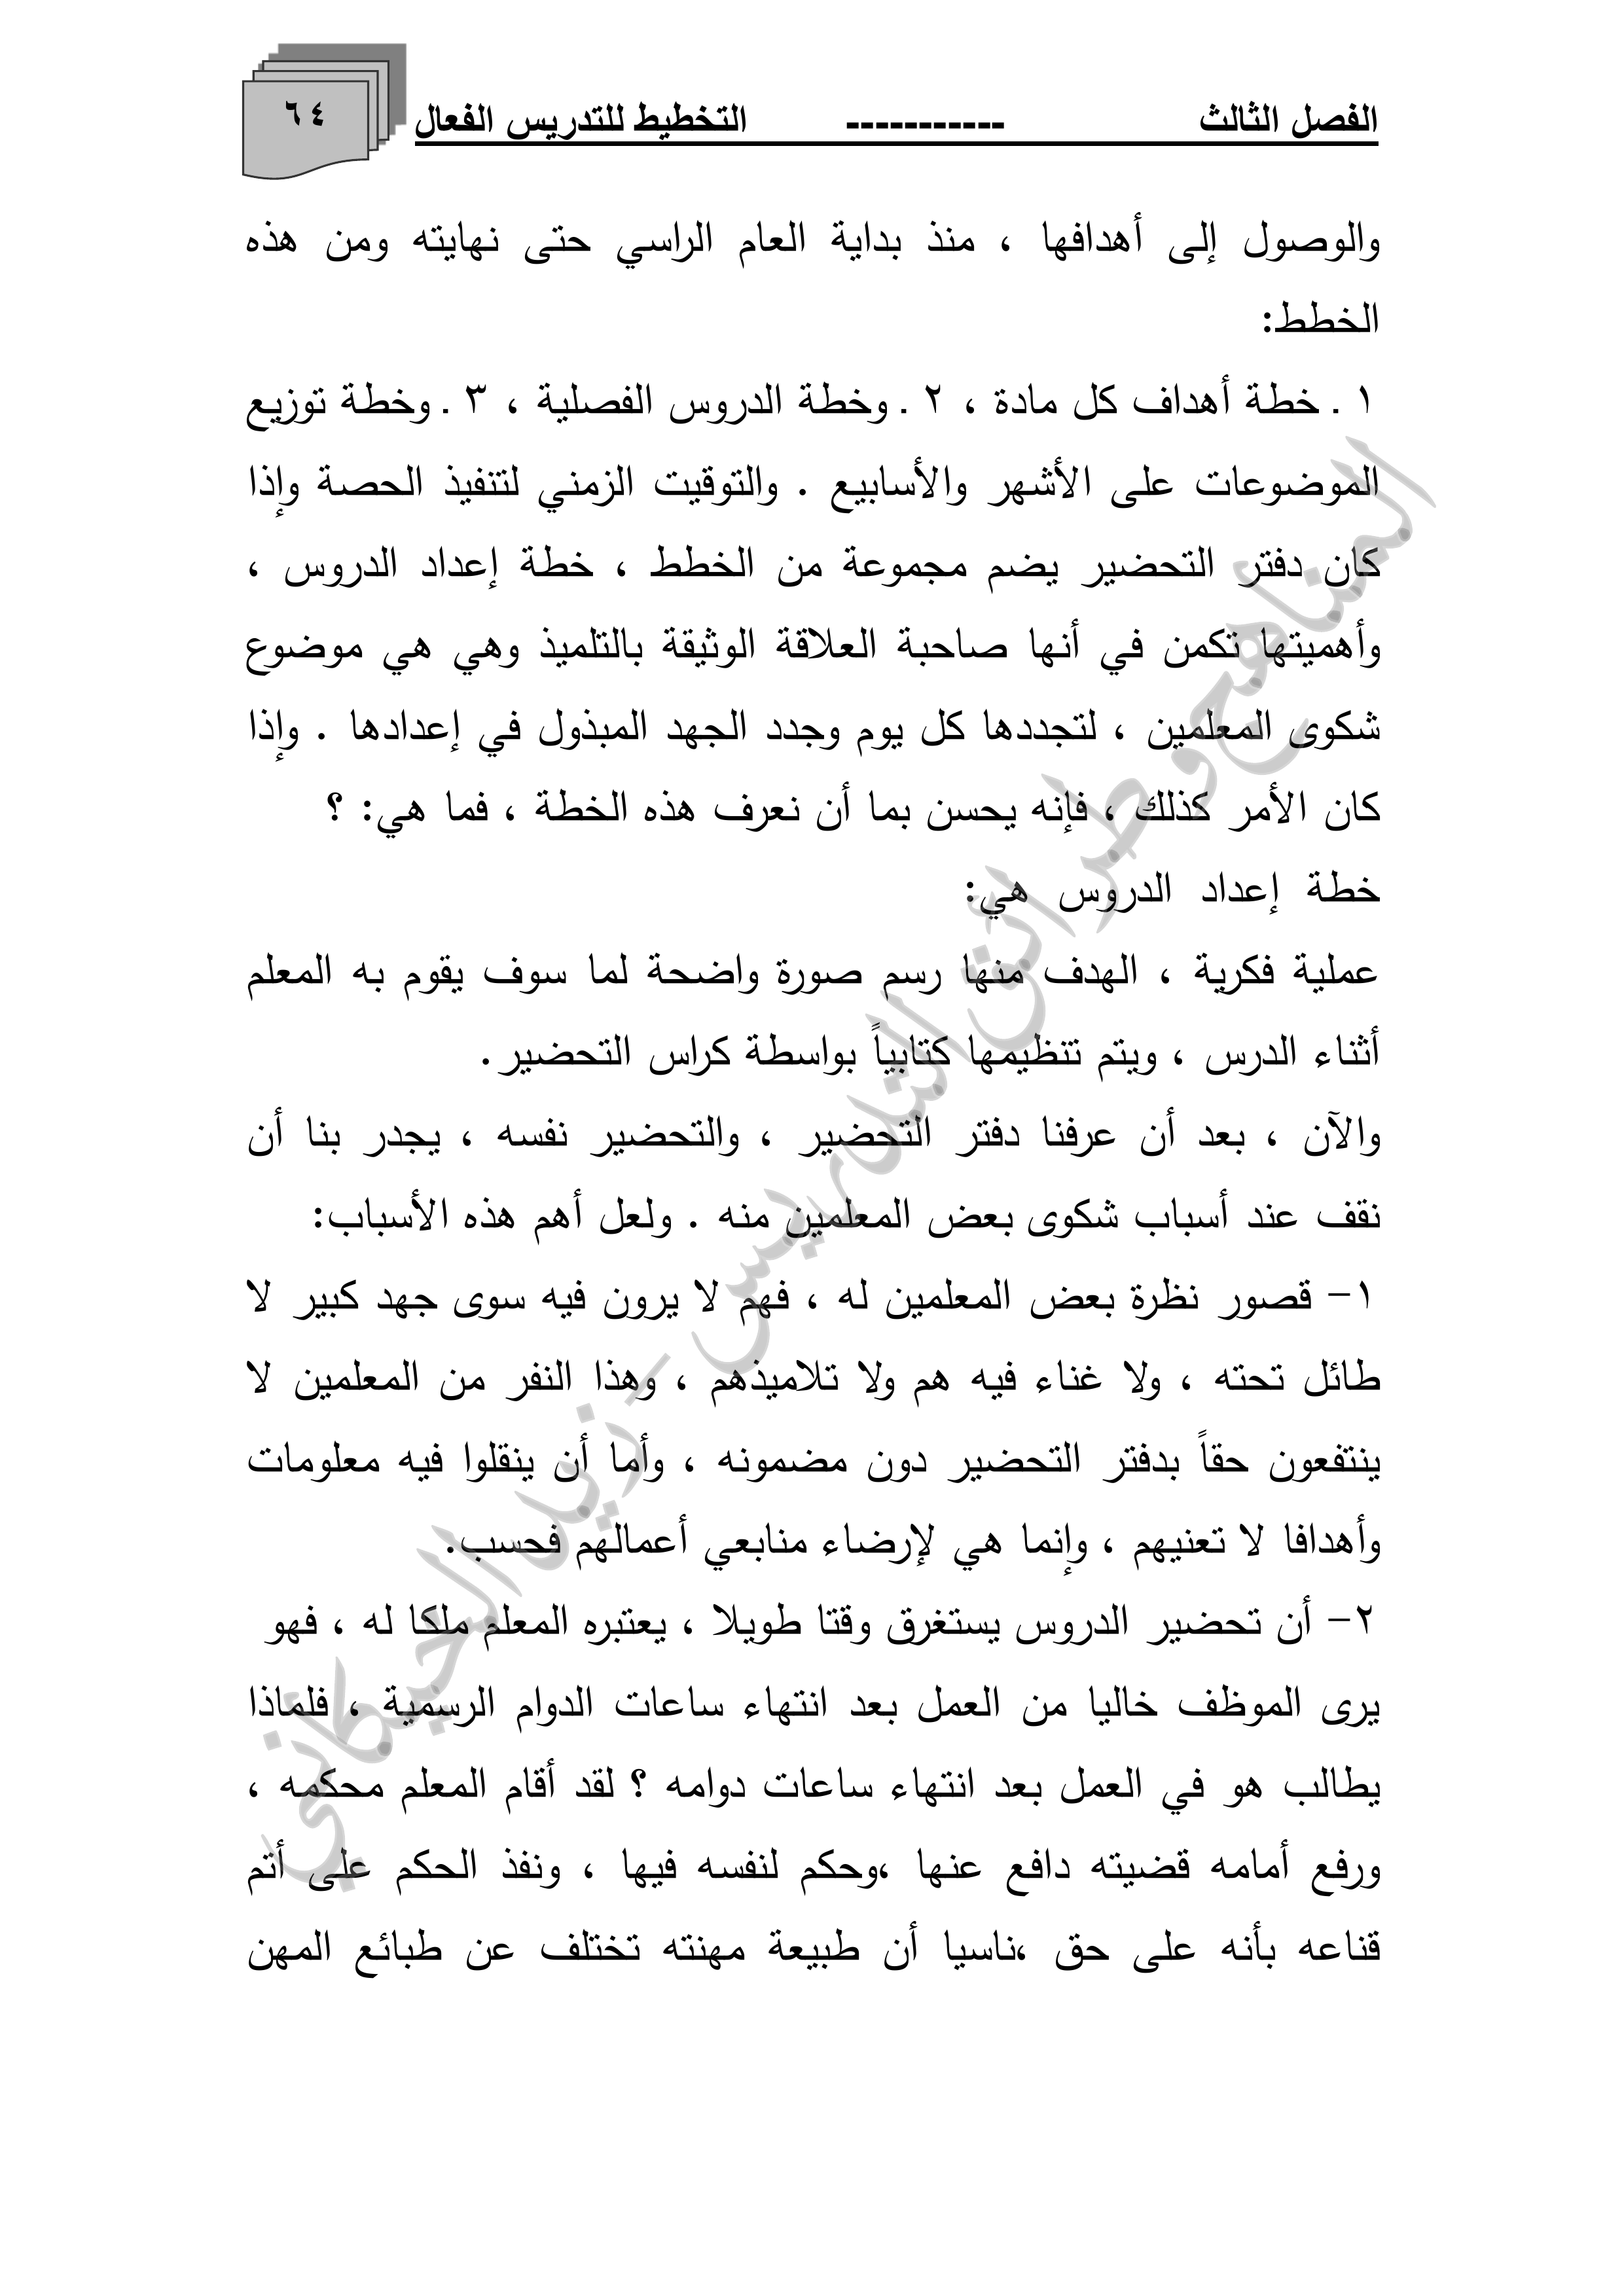 الفصل الثالث ----------- التخطيط للتدريس الفعال
٦٤
والوصول إلى أهدافها ، منذ بداية العام الراسي حتى نهايته ومن هذه
الخطط:
١ . خطة أهداف كل مادة ، ٢ . وخطة الدروس الفصلية ، ٣ . وخطة توزيع
الموضوعات على الأشهر والأسابيع . والتوقيت الزمني لتنفيذ الحصة وإذا
كان دفتر التحضير يضم مجموعة من الخطط ، خطة إعداد الدروس ،
وأهميتها تكمن في أنها صاحبة العلاقة الوثيقة بالتلميذ وهي هي موضوع
شكوى المعلمين ، لتجددها كل يوم وجدد الجهد المبذول في إعدادها . وإذا
كان الأمر كذلك ، فإنه يحسن بما أن نعرف هذه الخطة ، فما هي: ؟
خطة إعداد الدروس هي:
عملية فكرية ، الهدف منها رسم صورة واضحة لما سوف يقوم به المعلم
أثناء الدرس ، ويتم تنظيمها كتابياً بواسطة كراس التحضير .
والآن ، بعد أن عرفنا دفتر التحضير ، والتحضير نفسه ، يجدر بنا أن
نقف عند أسباب شكوى بعض المعلمين منه . ولعل أهم هذه الأسباب:
١- قصور نظرة بعض المعلمين له ، فهم لا يرون فيه سوى جهد كبير لا
طائل تحته ، ولا غناء فيه هم ولا تلاميذهم ، وهذا النفر من المعلمين لا
ينتفعون حقاً بدفتر التحضير دون مضمونه ، وأما أن ينقلوا فيه معلومات
وأهدافا لا تعنيهم ، وإنما هي لإرضاء منابعي أعمالهم فحسب.
٢- أن تحضير الدروس يستغرق وقتا طويلا ، يعتبره المعلم ملكا له ، فهو
يرى الموظف خاليا من العمل بعد انتهاء ساعات الدوام الرسمية ، فلماذا
يطالب هو في العمل بعد انتهاء ساعات دوامه ؟ لقد أقام المعلم محكمه ،
ورفع أمامه قضيته دافع عنها ،وحكم لنفسه فيها ، ونفذ الحكم على أتم
قناعه بأنه على حق ،ناسيا أن طبيعة مهنته تختلف عن طبائع المهن
المناهج وطرائق التدريس - زيد الحيكاني